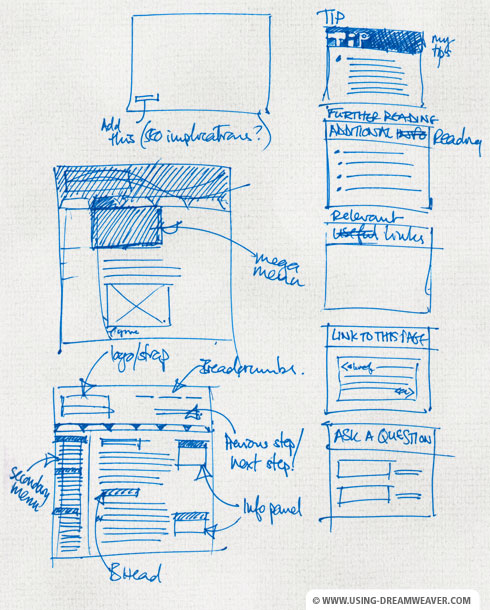 Add
this (SEO implications?)
mega
menu
logo/strap
Breadcrumbs.
Previous step/
next step!
secondary
menu
Info panel
B Head
TIP
TIP
my
tips
FURTHER READING
ADDITIONAL Info Reading
Relevant
Useful Links
LINK TO THIS PAGE
<a href
<a>
ASK A QUESTION
© WWW.USING-DREAMWEAVER.COM